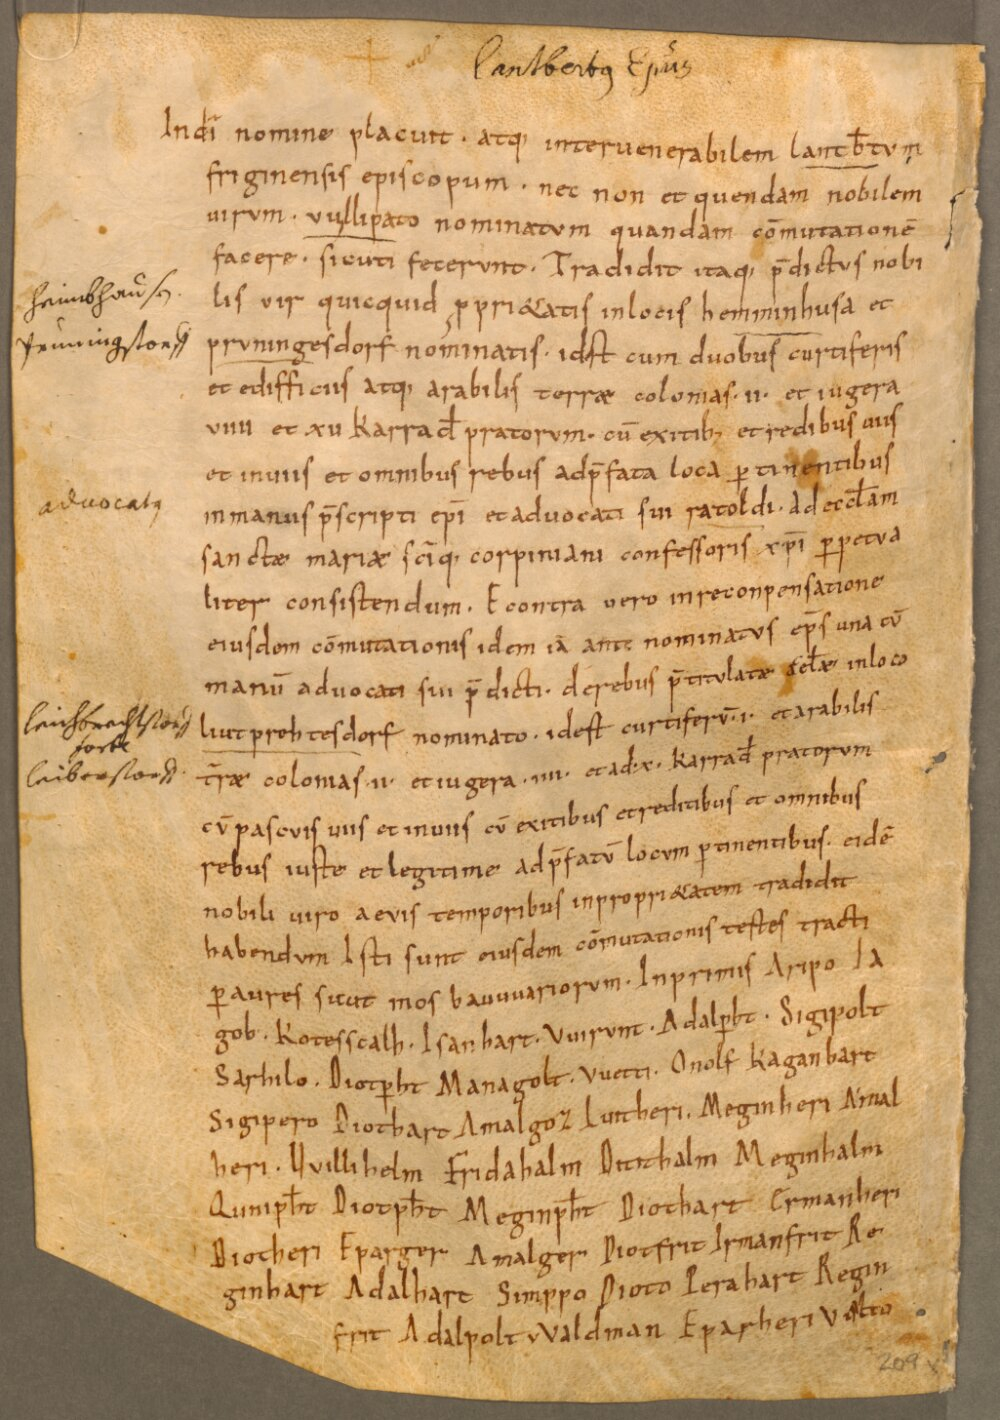 Lantbertus Ep̄us
Indī nomine placuit · atq; interuenerabilem lantƀtum
friginensis episcopum · nec non et quendam nobilem
uirum · vvllipato nominatum quandam cōmutationē
facere · sicuti fecerunt · Tradidit itaq; p̄dictus nobi
heimbhausen
lis vir quicquid ꝓpri&atis inlocis hemminhusa et
Pruningstorff
prvningesdorf nominatis · idēst cum duobus curtiferis
et edifficiis atq; arabilis terræ colonias · ii · et iugera
viiii et xu karrađ pratorum · cū exitib; et redibus uiis
et inuiis et omnibus rebus adp̄fata loca ꝑtinentibus
advocatus
inmanus p̄scripti ep̄i et aduocati sui ratoldi · Ad eccłam
sanctæ mariæ sc̄iq; corpiniani confessoris xp̄i ꝑpetua
liter consistendum · E contra vero inreconpensatione
eiusdem cōmutationis idem iā ante nominatus ep̄s una cū
manū advocati sui p̄dicti · derebus p̄titulatæ æcłæ inloco
liutprehtesdorf nominato · idest curtiferū · i · et arabilis
forte
t̄ræ colonias · ii · et iugera · iiii · et ad · x · karrađ pratorum
cū pascuis uiis et inuiis cū exitibus et reditibus et omnibus
rebus iuste et legitime adp̄fatū locum ꝑtinentibus · eidē
nobili uiro aevis temporibus inpropri&atem tradidit
habendum Isti sunt eiusdem cōmutationis testes tracti
ꝑaures sicut mos bauuuariorum · Inprimis Aripo Ja
gob · Kotesscalh · Isanhart · Vuirunt · Adalꝑht · Sigipolt
Sarhilo · Diotꝑht Managolt · Vuetti · Onolf Kaganhart
Sigipero Diothart Amalgoz Liutheri · Meginheri Amal
heri · Uuillihelm Fridahalm Ditithalm Meginhalm
Qunipħt Diotpħt Meginpħt Diothart Ermanheri
Diotheri Eparger Amalger Diotfrit Irmanfrit Re
ginhart Adalhart Simppo Dioto Perahart Regin
frit Adalpolt Waldman Eparheri
209